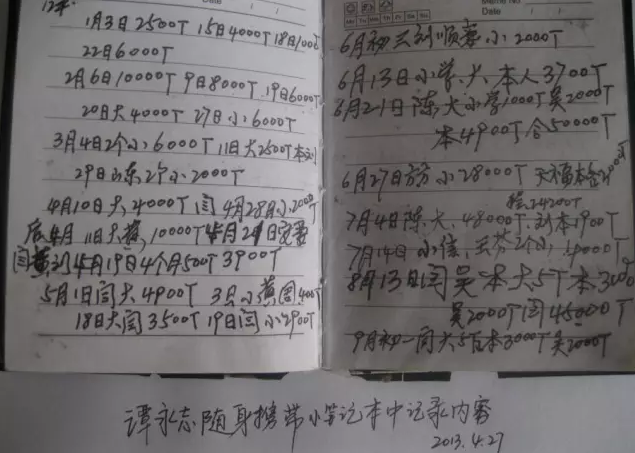 1月3日2500T 15日4000T 18日1000T
22日6000T
2月6日10000T 9日8000T 19日6000T
20日大4000T 27日小6000T
3月4日2个小6000T 11日大2500T本刘
29日山东2个小2000T
4月10日大4000T闫4月28日小2000T
4月11日大 10000T
4月19日4个月500T 3900T
5月1日闫大4900T 3日小黄闫400T
18日大闫3500T 19日闫小2900T
Memo No.
Date
Mo Tu We Th Fr Sa Su
6月初 刘顺 小2000T
6月13日小学、大、本人3700T
6月21日陈、大小学1000T吴2000T
本4900T合50000T
6月27日 小28000T
24200T
7月4日陈、大、48000T、刘本1900T
7月14日小信、云芬2个小14000T
8月13日闫吴本大5T本3000
吴2000T闫45000T
9月初一闫大5百本3000T吴2000T
谭永志随身携带小笔记本中记录内容
2013.4.27